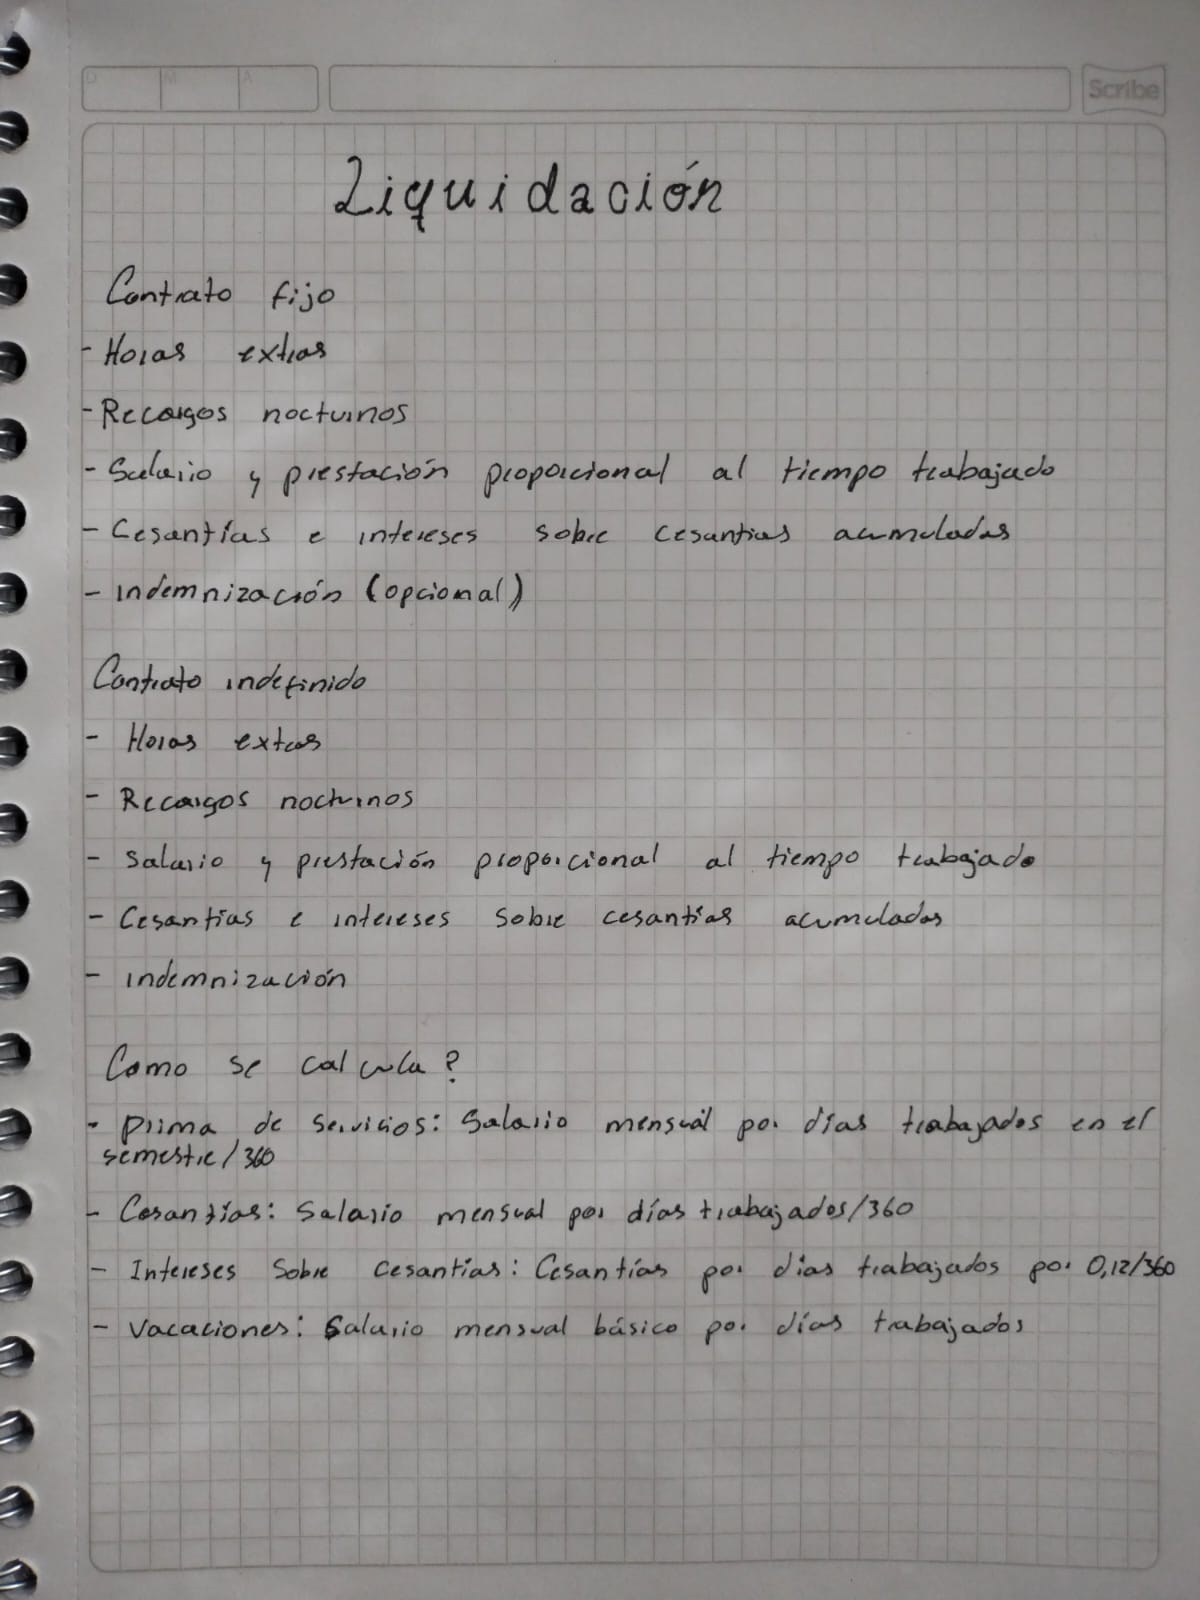 D M A
Scribe
Liquidación
Contrato fijo
- Horas extras
- Recargos nocturnos
- Salario y prestación proporcional al tiempo trabajado
- Cesantías e intereses sobre cesantías acumuladas
- indemnización (opcional)
Contrato indefinido
- Horas extras
- Recargos nocturnos
- Salario y prestación proporcional al tiempo trabajado
- Cesantias e intereses sobre cesantías acumuladas
- indemnización
Como se calcula?
- Prima de servicios: Salario mensual por días trabajados en el
semestre/360
- Cesantías: Salario mensual por días trabajados/360
- Intereses Sobre cesantías: Cesantías por días trabajados por 0,12/360
- Vacaciones: Salario mensual básico por días trabajados